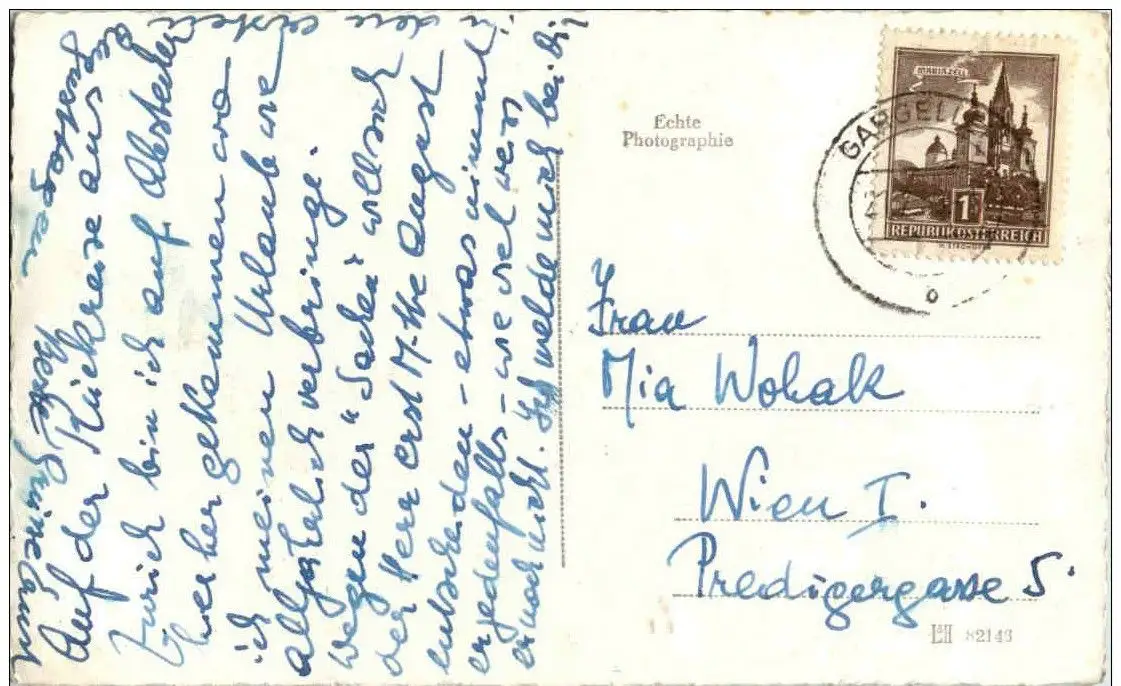 Auf der Rückreise aus
Zürich bin ich auf Abstecher
hierher gekommen wo
ich meinen Urlaub wie
alljährlich verbringe.
Wegen der "Sachen" will sich
der Herr erst Mitte August
entscheiden - etwas nimmt
er jedenfalls - wie viel weiss
er noch nicht. Ich melde mich bei Dir
in den ersten
Beste Grüsse
Echte
Photographie
MARIAZELL
1
REPUBLIK ÖSTERREICH
GARGEL
Frau
Mia Wohak
Wien I.
Predigergasse 5.
82143